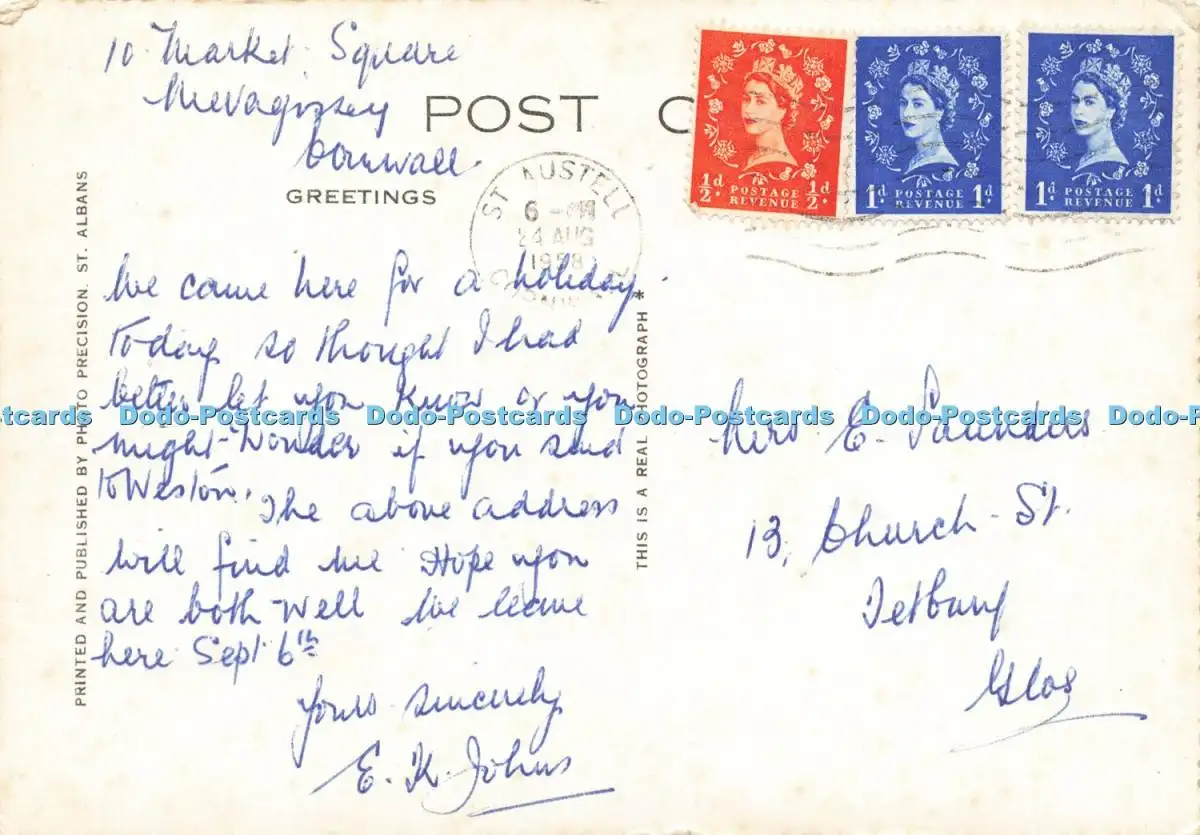 10 Market Square
Mevagissey
Cornwall.
POST C
GREETINGS
ST. AUSTELL
6 - PM
24 AUG
1958
CORNWALL
½d ½d
POSTAGE
REVENUE
1d 1d
POSTAGE
REVENUE
1d 1d
POSTAGE
REVENUE
We came here for a holiday
Today so thought I had
better let you know or you
might wonder if you send
to Weston. The above address
will find me Hope you
are both well We leave
here Sept 6th
Yours sincerely
E. K. Johns
PRINTED AND PUBLISHED BY PHOTO PRECISION. ST. ALBANS
THIS IS A REAL PHOTOGRAPH *
Mrs E. Saunders
13, Church St.
Tetbury
Glos
Dodo-Postcards Dodo-Postcards Dodo-Postcards Dodo-Postcards Dodo-P